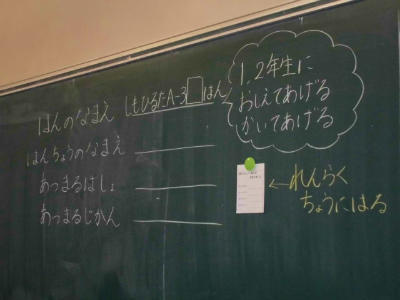 はんのなまえ しもひるたA-3□はん
はんちょうのなまえ
あつまるはしょ
あつまるじかん
1.2年生に
おしえてあげる
かいてあげる
←れんらく
ちょうにはる